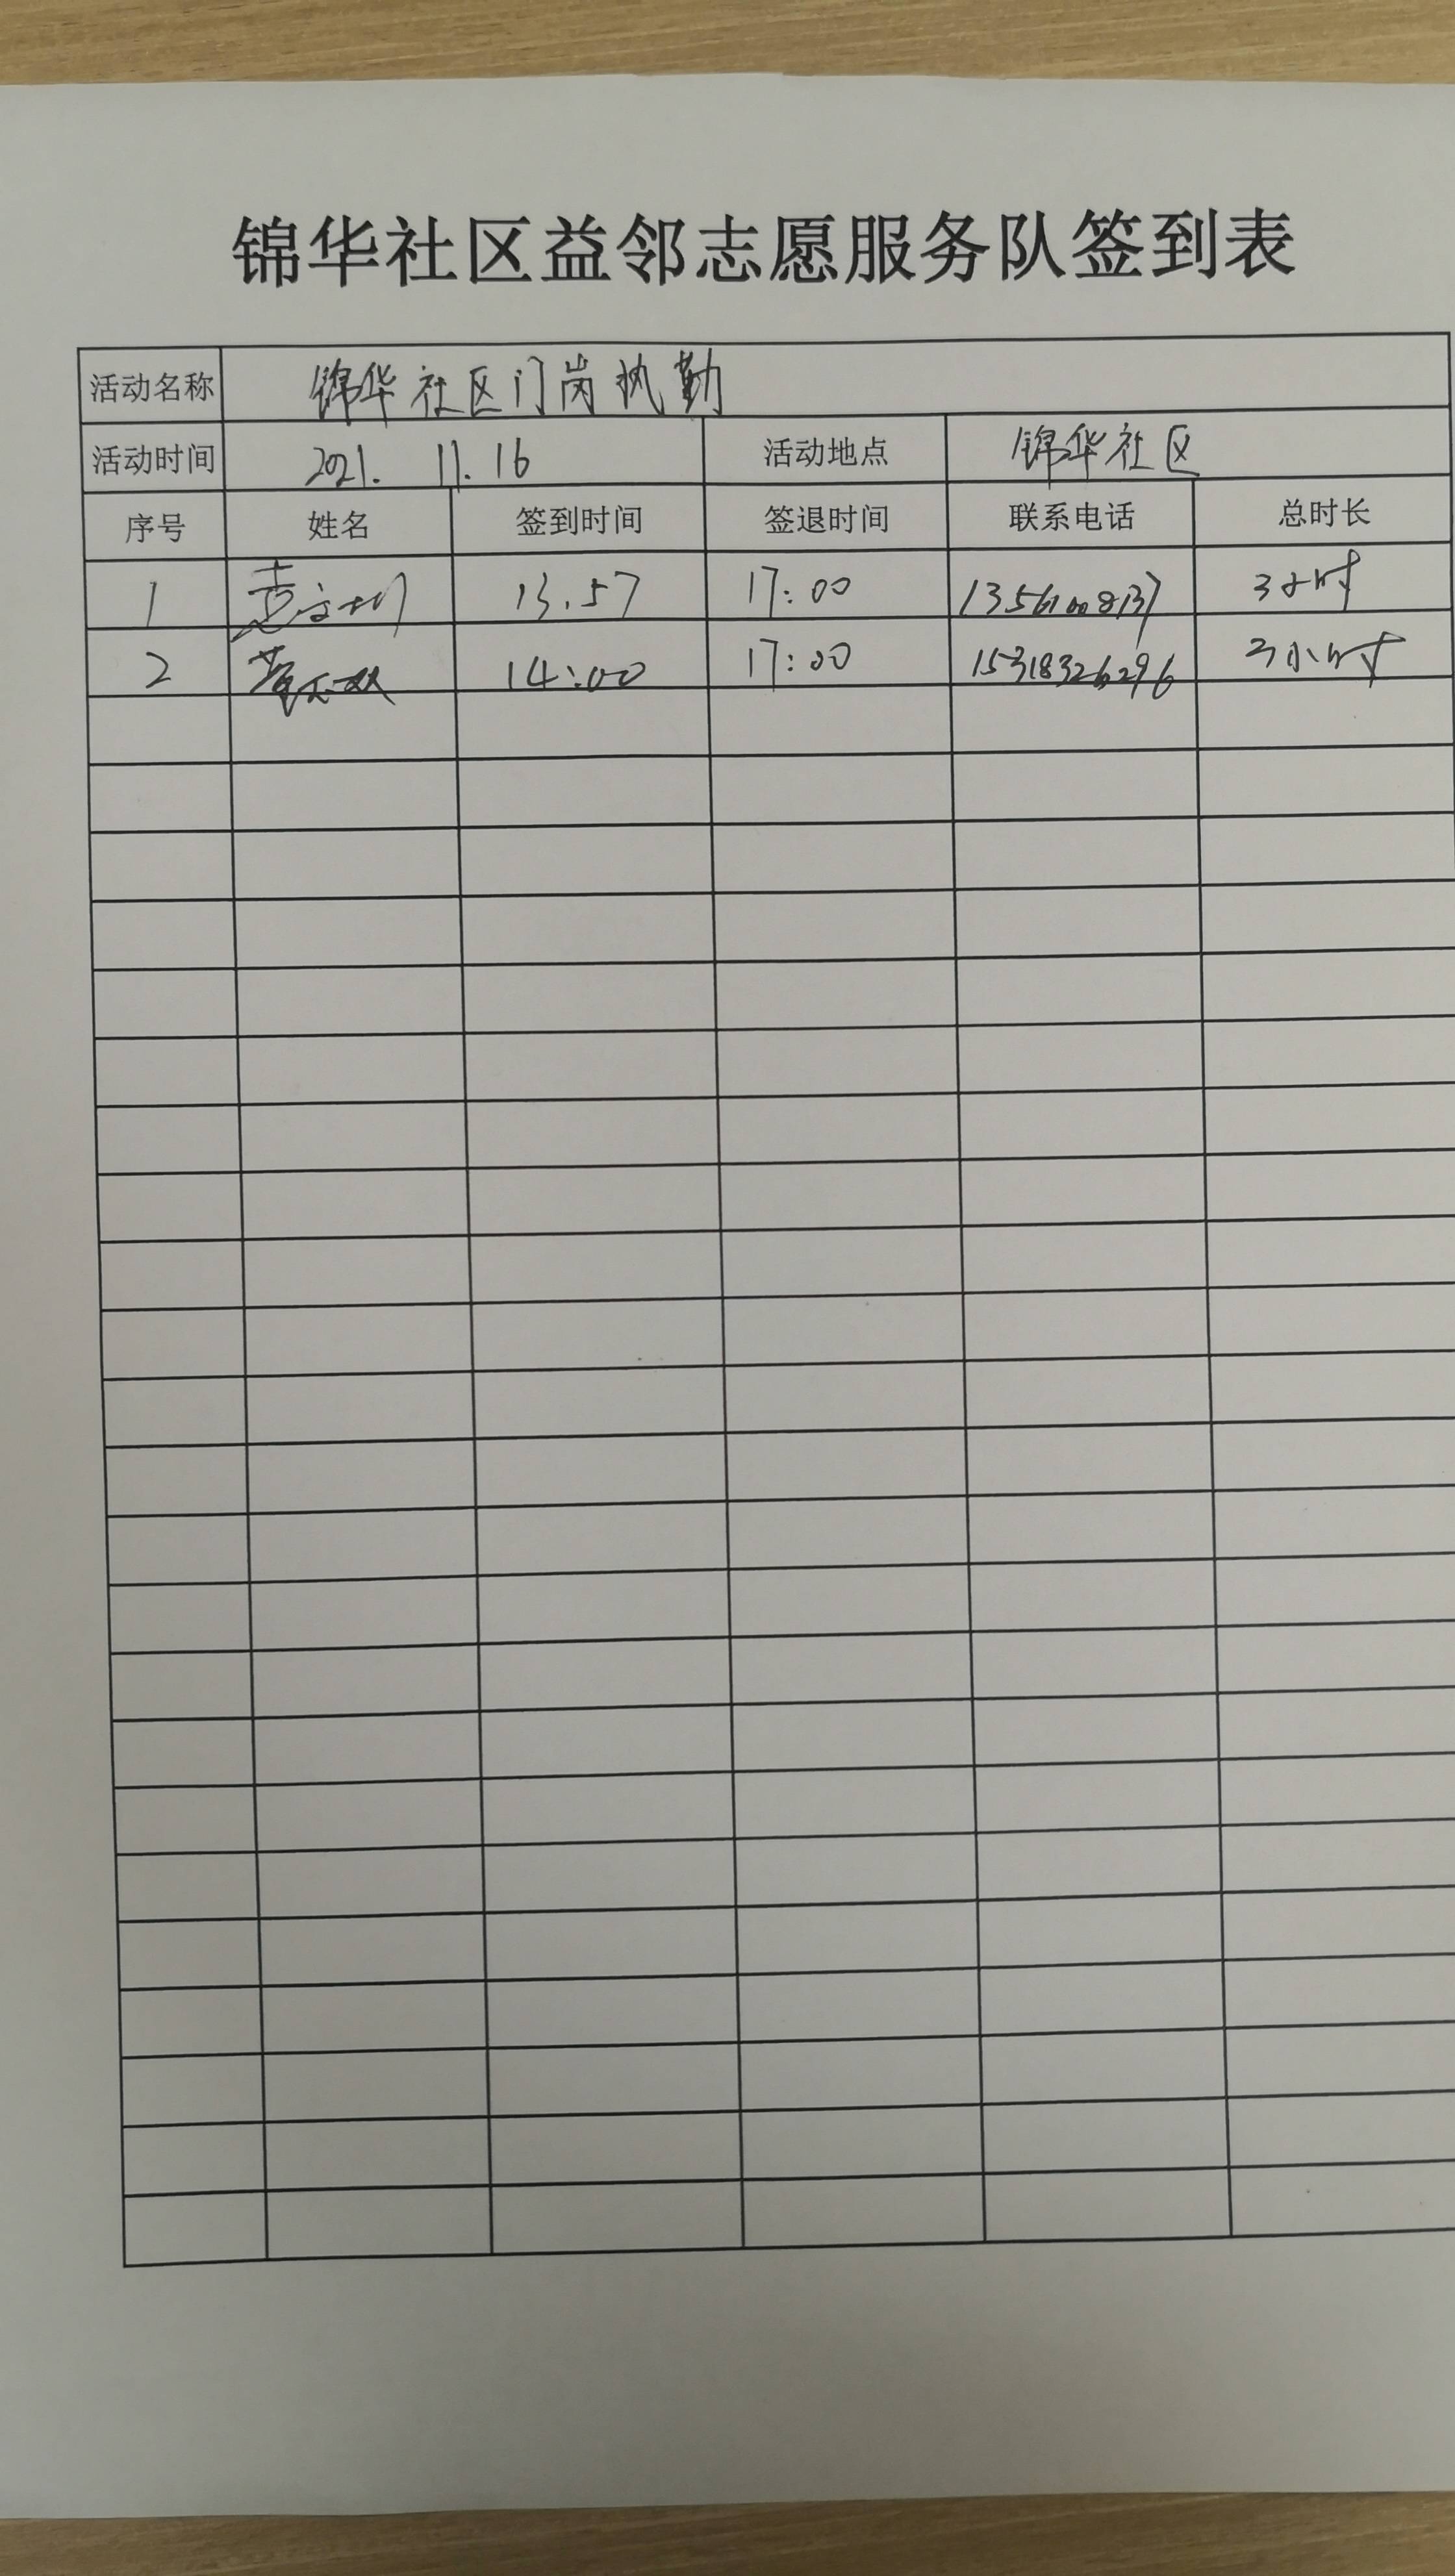 锦华社区益邻志愿服务队签到表
活动名称 锦华社区门岗执勤
活动时间 2021. 11. 16 活动地点 锦华社区
序号 姓名 签到时间 签退时间 联系电话 总时长
1 13.57 17:00 3小时
2 14:00 17:00 15318326296 3小时